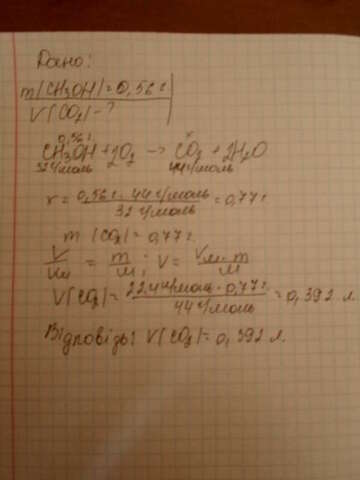 Дано:
m(CH3OH)=0,56 г.
V(CO2)-?
0,56г. x
CH3OH + O2 → CO2 + 2H2O
32 г/моль 44 г/моль
x = 0,56г. · 44 г/моль / 32 г/моль = 0,77г.
m (CO2) = 0,77г.
V/Vm = m/M ; V = Vm · m / M
V(CO2) = 22,4 л/моль · 0,77г. / 44 г/моль = 0,392 л.
Відповідь: V(CO2) = 0,392 л.